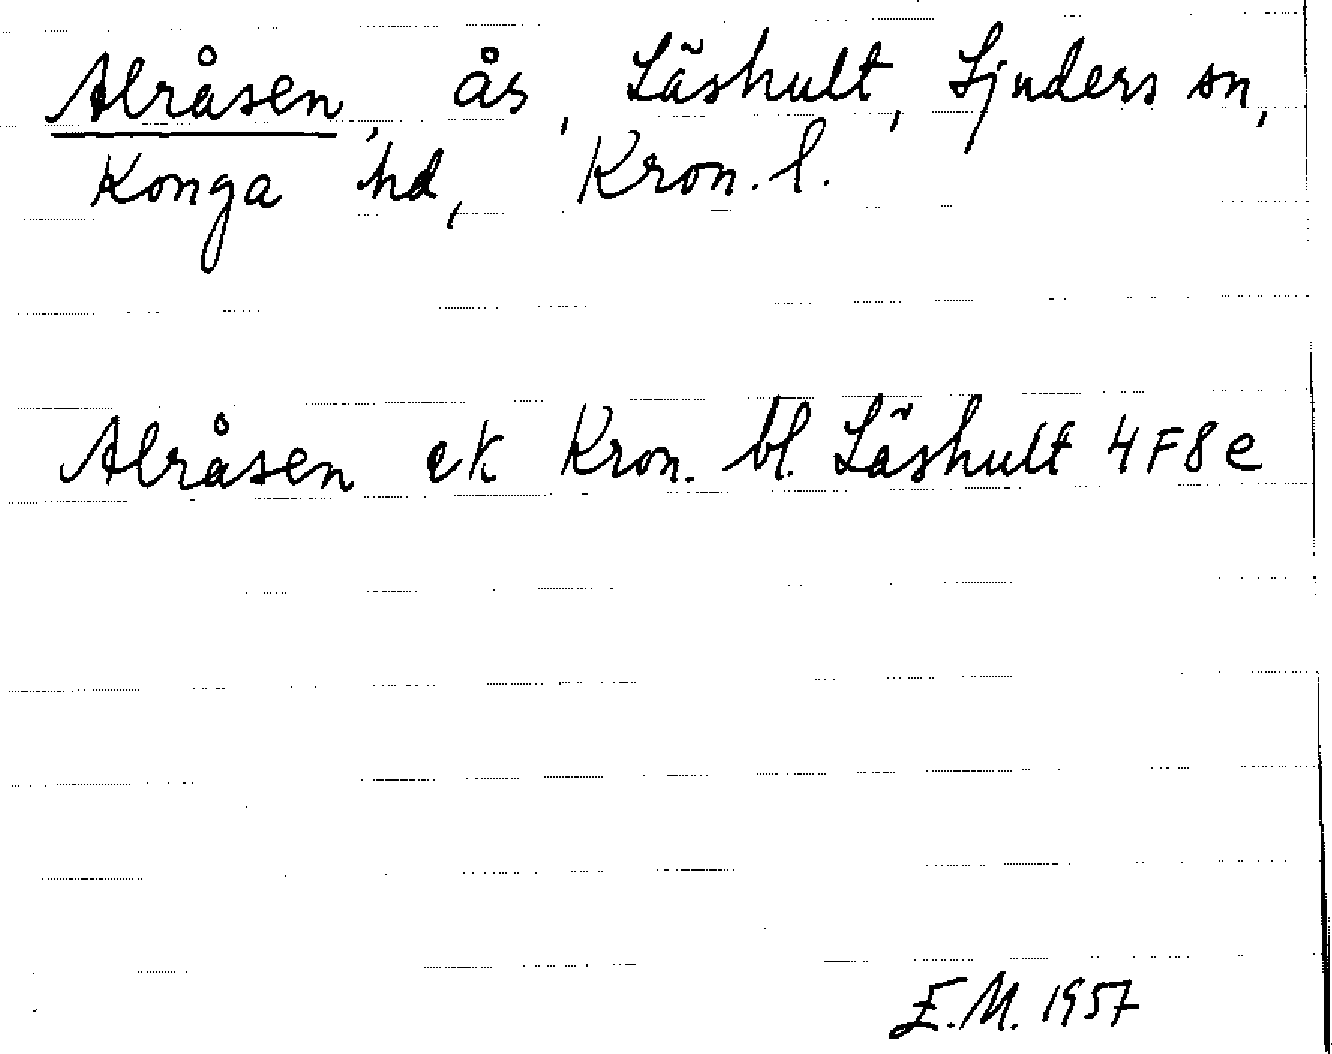 Alråsen, ås, Läshult, Ljuders sn,
Konga hd, Kron. l.
Alråsen ek Kron. bl. Läshult 4F8e
E.M. 1957